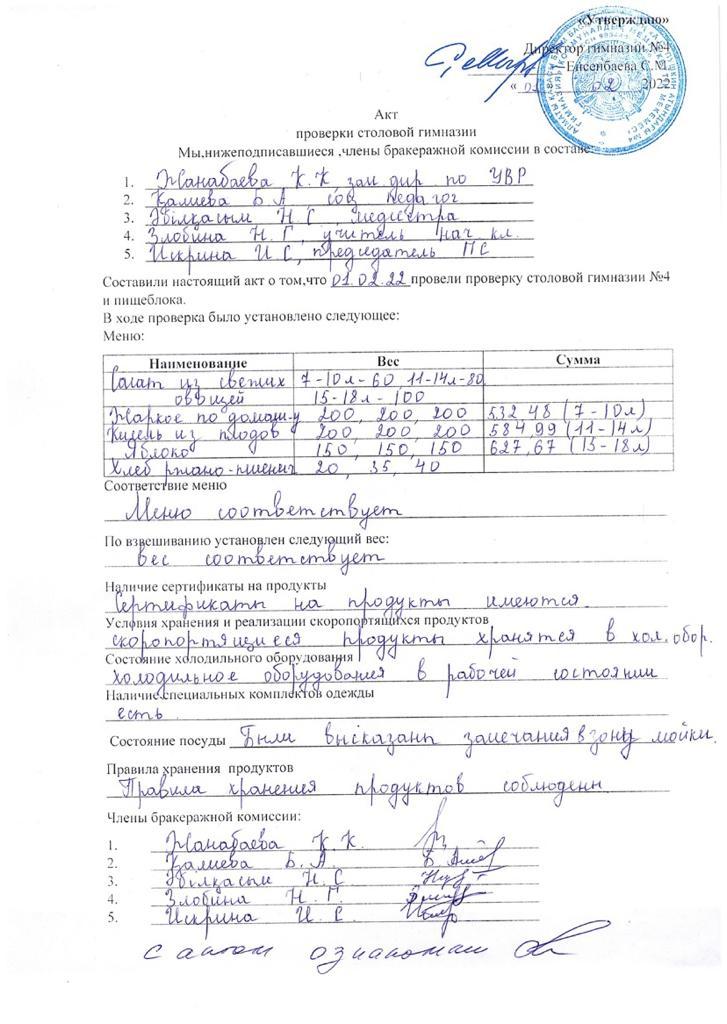 «Утверждаю»
Директор гимназии №4
Енсенбаева С.М.
« 02 02 2022
Акт
проверки столовой гимназии
Мы,нижеподписавшиеся ,члены бракеражной комиссии в составе:
1. Жанабаева К.К, зам дир. по УВР
2. Калиева Б.А соц педагог
3. Әбілқасым Н.С, медсестра
4. Злобина Н.Г, учитель нач кл.
5. Искрина И.С, председатель ПС
Составили настоящий акт о том,что 01.02.22 провели проверку столовой гимназии №4
и пищеблока.
В ходе проверка было установлено следующее:
Меню:
Наименование Вес Сумма
Салат из свежих 7-10л-60, 11-14л-80
овощей 15-18л-100
Жаркое по домаш-у 200, 200, 200 532,48 (7-10л)
Кисель из плодов 200, 200, 200 584,99 (11-14л)
Яблоко 150, 150, 150 627,67 (15-18л)
Хлеб ржано-пшенич 20, 35, 40
Соответствие меню
Меню соответствует
По взвешиванию установлен следующий вес:
вес соответствует
Наличие сертификаты на продукты
Сертификаты на продукты имеются.
Условия хранения и реализации скоропортящихся продуктов
скоропортящиеся продукты хранятся в хол. обор.
Состояние холодильного оборудования
холодильное оборудования в рабочей состоянии
Наличие специальных комплектов одежды
есть.
Состояние посуды Были высказаны замечания в зону мойки.
Правила хранения продуктов
Правила хранения продуктов соблюдены
Члены бракеражной комиссии:
1. Жанабаева К.К.
2. Калиева Б.А.
3. Әбілқасым Н С
4. Злобина Н.Г.
5. Искрина И.С.
с актом ознакомлен